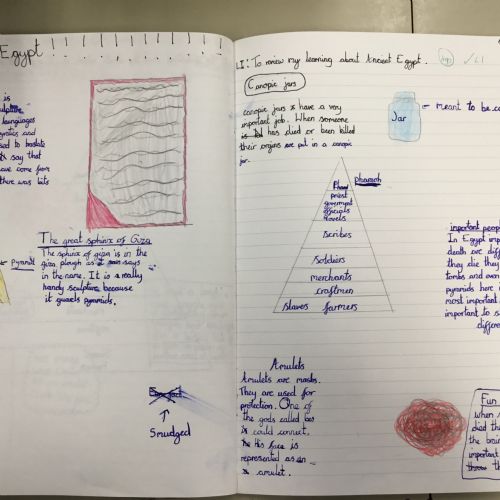 Egypt
is
languages
and
sed to translate
say that
ove come from
there was lots
The great sphinx of Giza
The sphinx of giza is in the
giza plough as it says
in the name. It is a really
handy sculpture because
it guards pyramids.
Pyramid
Smudged
L.I: To review my learning about Ancient Egypt.
Canopic jars
canopic jars have a very
important job. When someone
is has died or been killed
their organs are put in a canopic
jar.
Jar
= meant to be co
pharaoh
priest
government
officials
nobels
scribes
Soldiers
merchants
craftmen
slaves farmers
important peop
In Egypt imp
death are diff
they die they
tombs and even
pyramids here i
most important
important to s
differe
Amulets
Amulets are masks.
They are used for
protection. One of
the gods called bes
is could connect.
His face is
represented as an
amulet.
Fun
when
died the
the brain
important
th